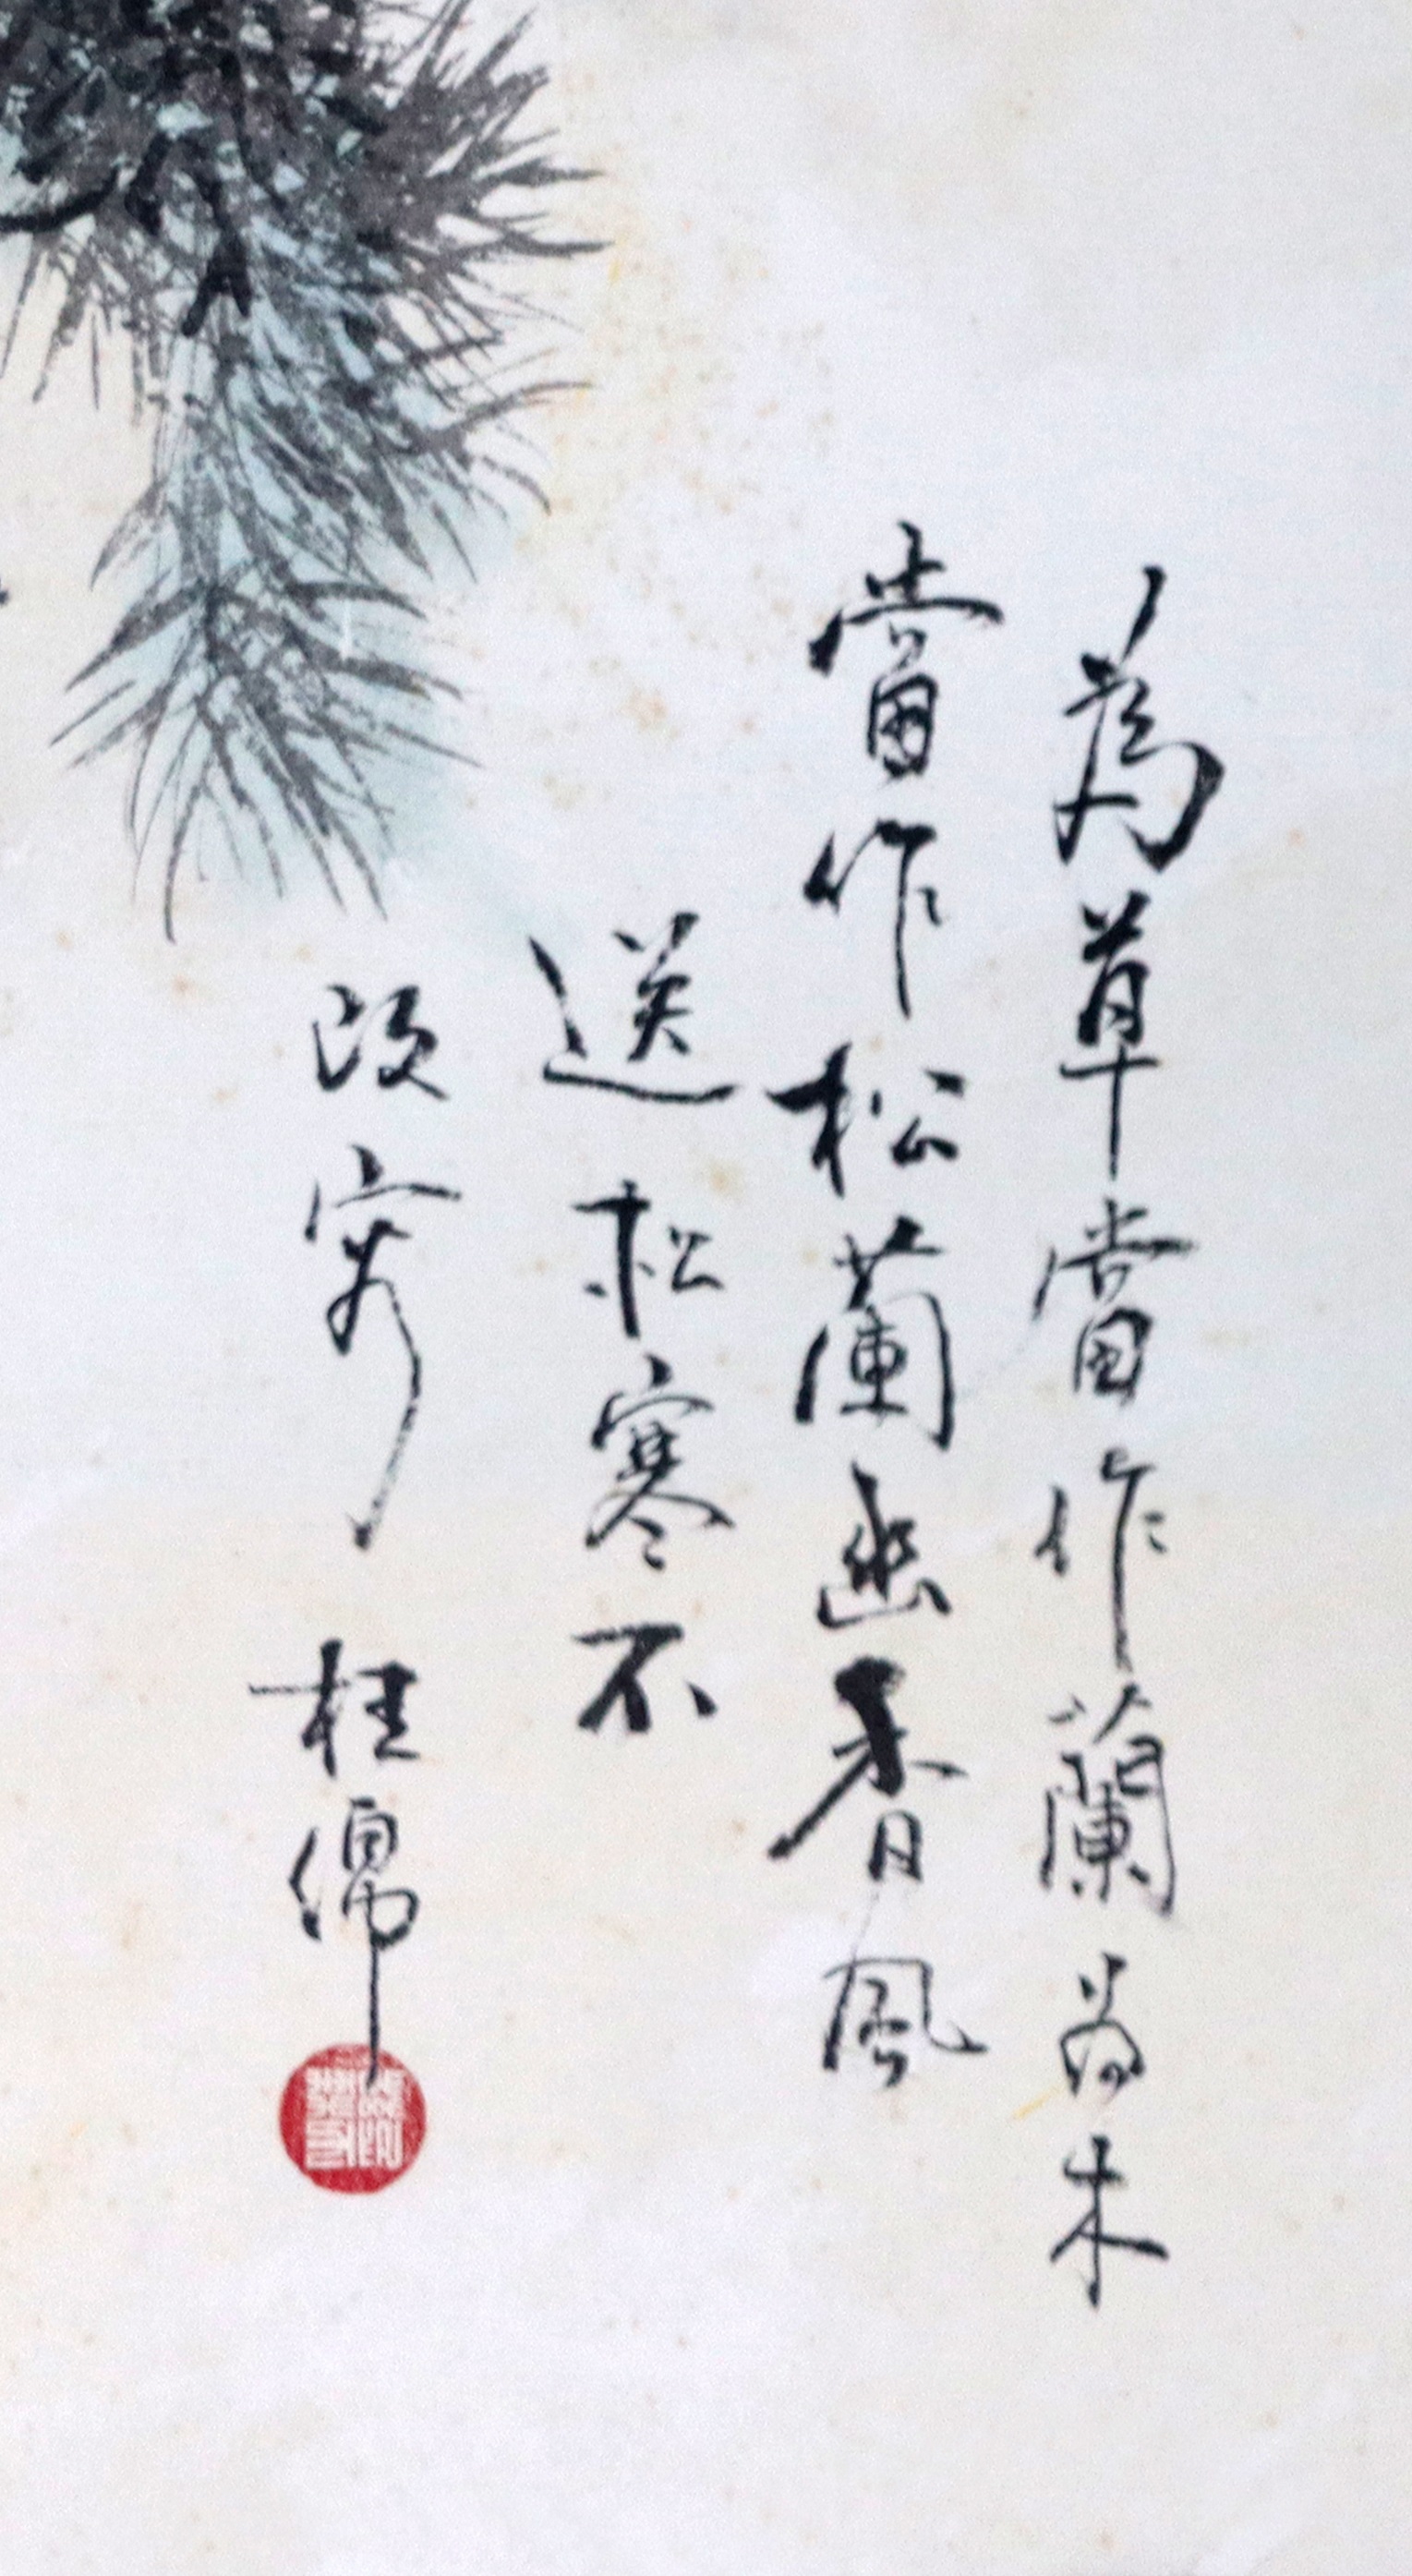 為草當作蘭為木
當作松蘭幽香風
送松寒不
改容 桂綿